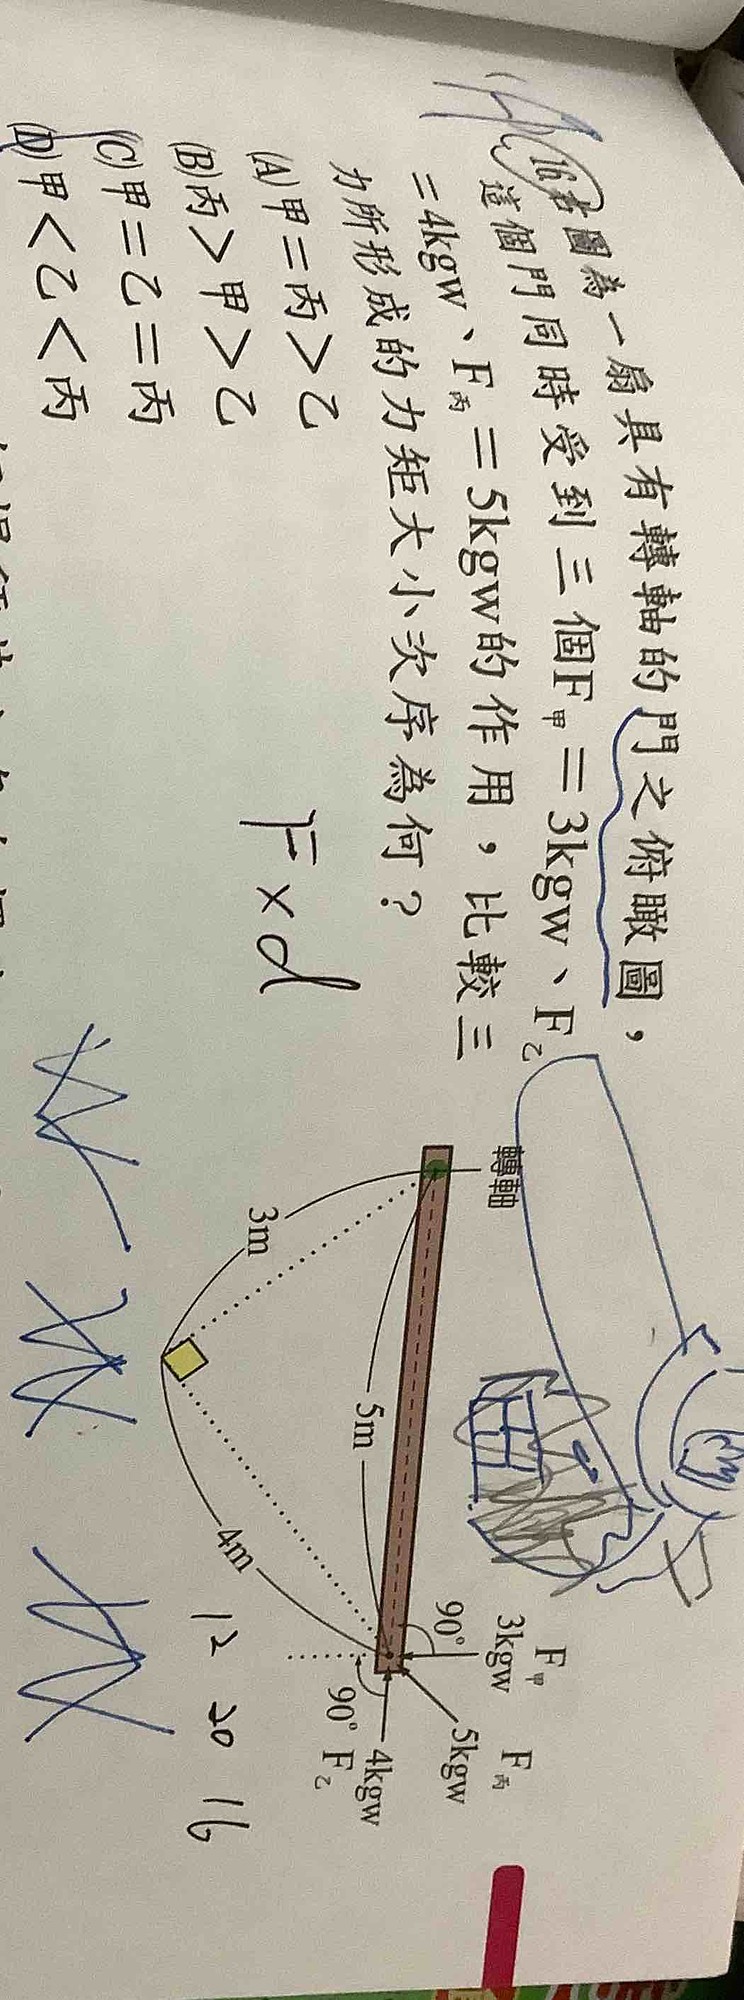 16.右圖為一扇具有轉軸的門之俯瞰圖，
這個門同時受到三個F甲＝3kgw、F乙
＝4kgw、F丙＝5kgw的作用，比較三
力所形成的力矩大小次序為何？
(A)甲＝丙＞乙
(B)丙＞甲＞乙
(C)甲＝乙＝丙
(D)甲＜乙＜丙
F×d
轉軸
3m
5m
4m
F甲
3kgw
90°
F丙
5kgw
4kgw
90° F乙
12 20 16